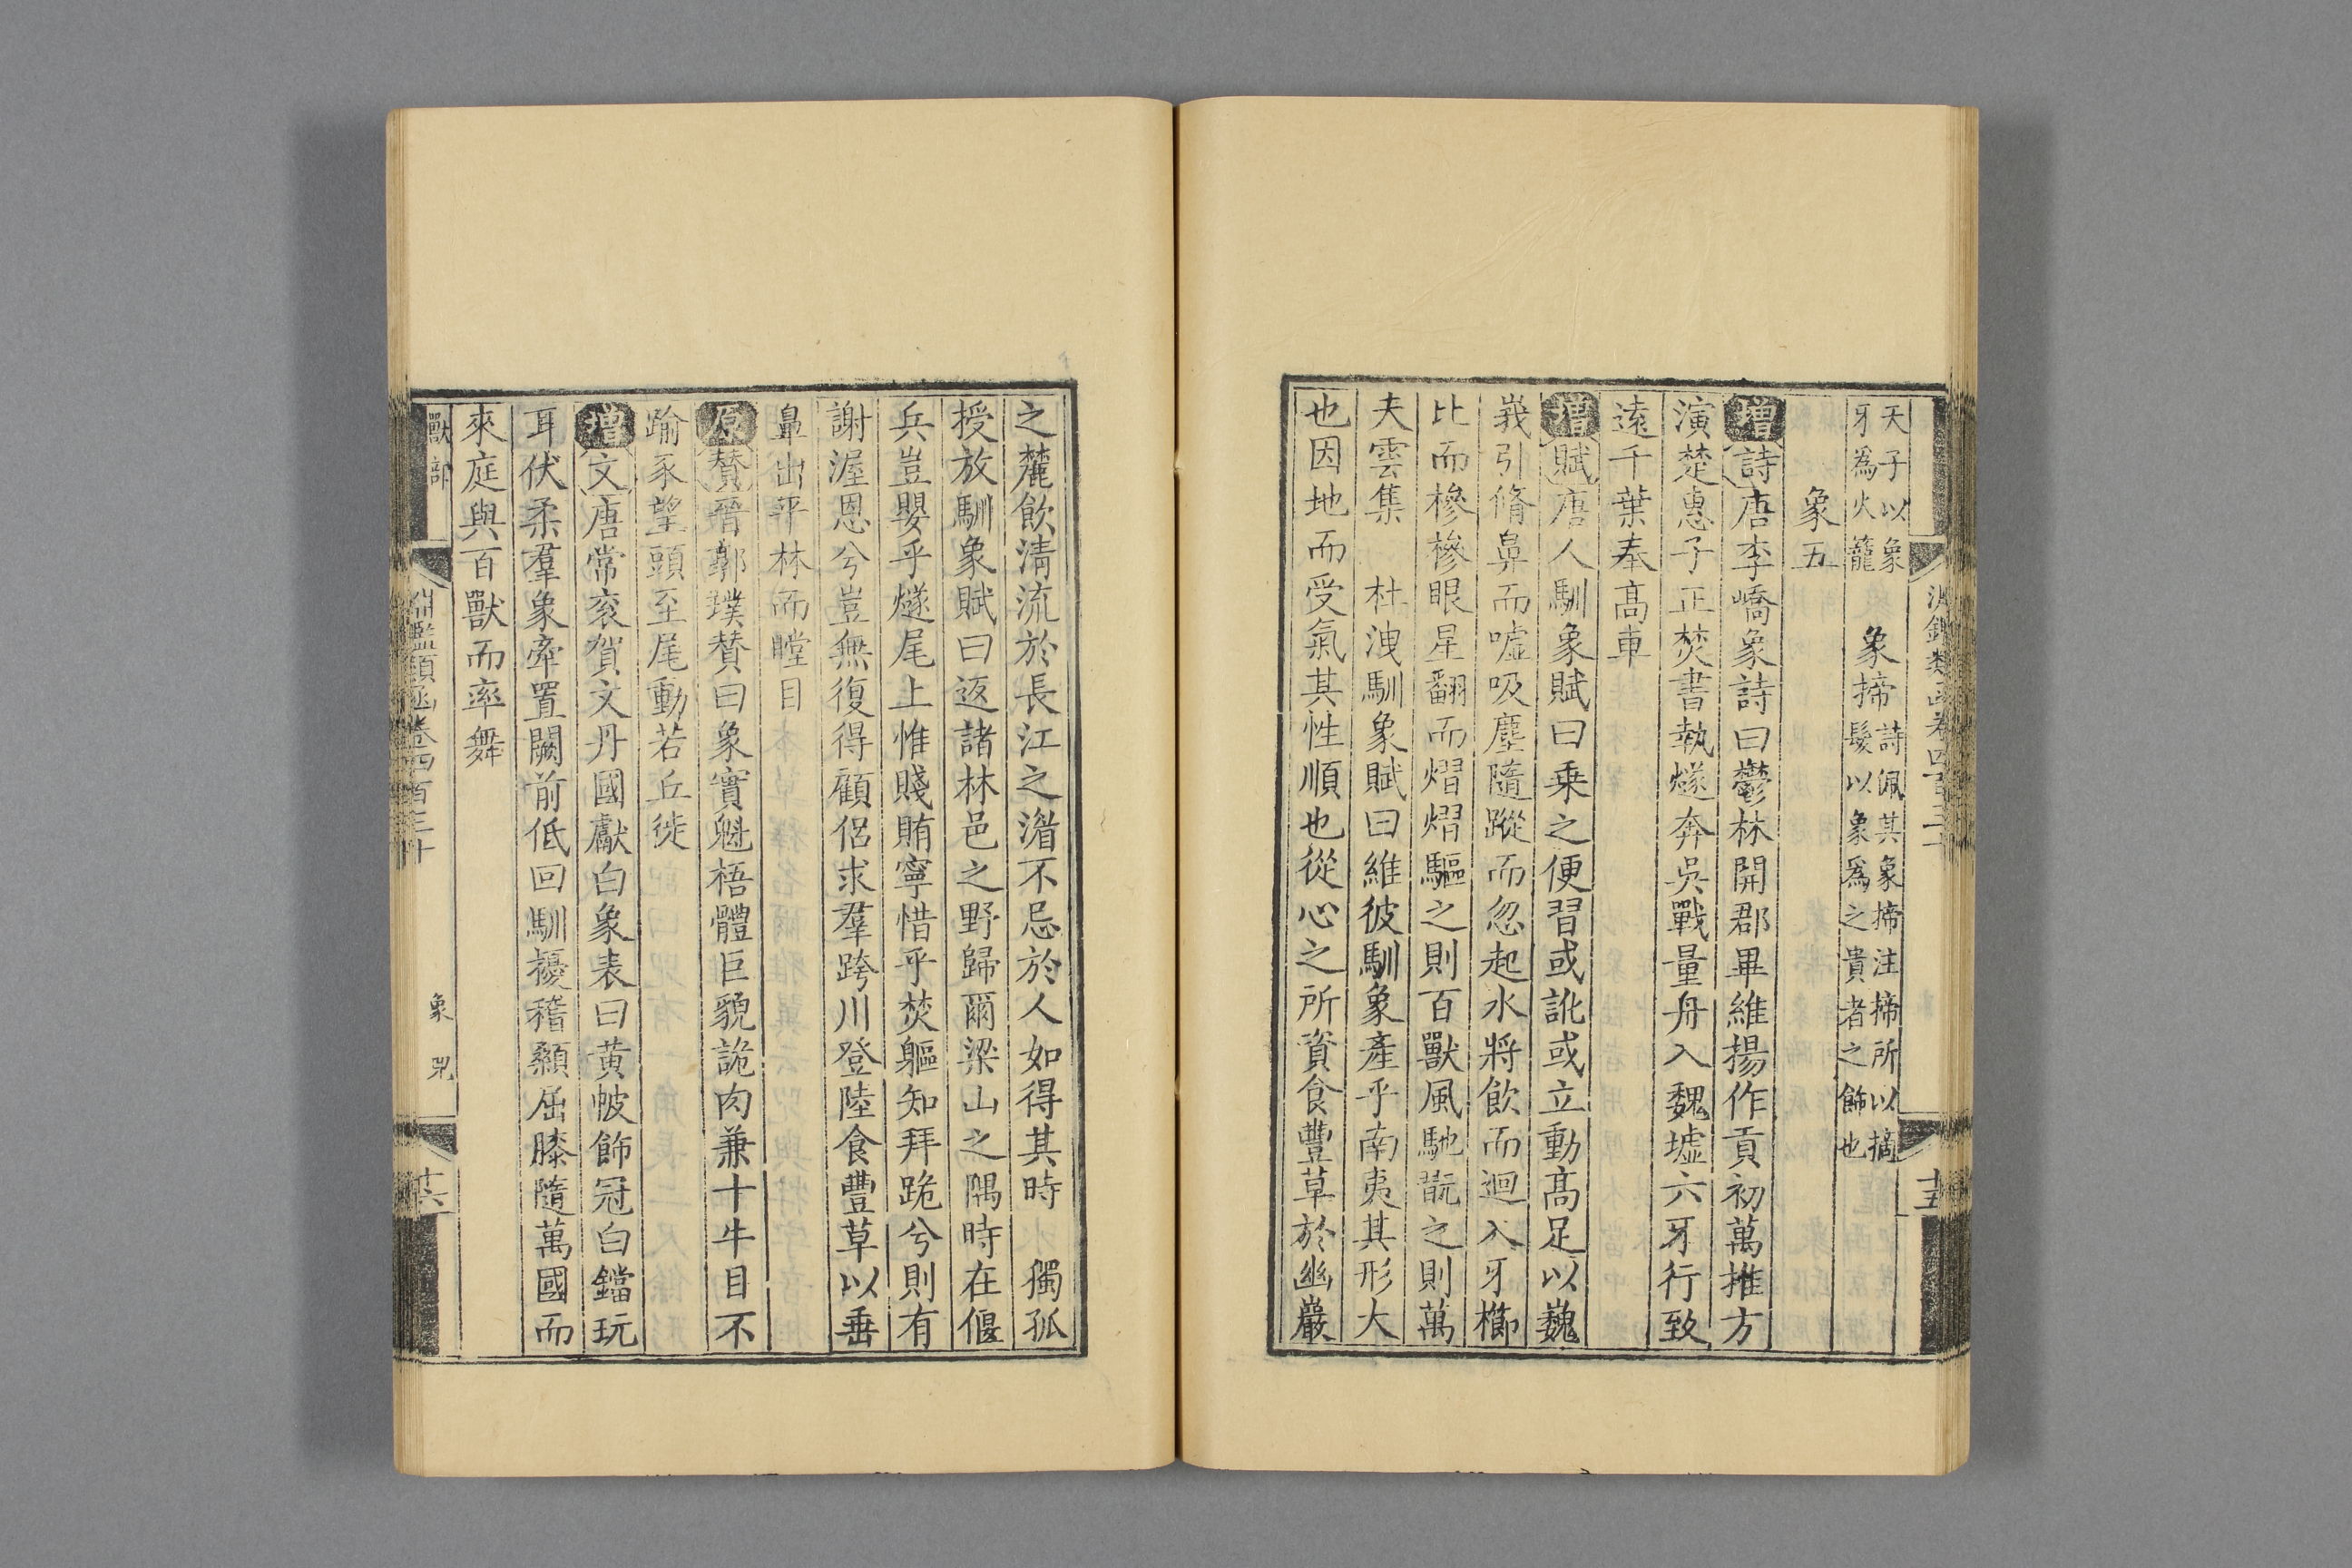 淵鑑類函卷四百三十
十五
天子以象
牙為火籠
象揥
詩佩其象揥注揥所以摘
髮以象為之貴者之飾也
象五
增詩唐李嶠象詩曰鬱林開郡畢維揚作貢初萬推方
演楚惠子正焚書執燧奔吳戰量舟入魏墟六牙行致
遠千葉奉髙車
增賦唐人馴象賦曰乗之便習或訛或立動髙足以巍
峩引脩鼻而噓吸塵隨蹤而忽起水將飲而迴入牙櫛
比而槮槮眼星翻而熠熠驅之則百獸風馳翫之則萬
夫雲集 杜洩馴象賦曰維彼馴象產乎南夷其形大
也因地而受氣其性順也從心之所資食豐草於幽巖
之麓飲清流於長江之湄不忌於人如得其時 獨孤
授放馴象賦曰返諸林邑之野歸爾梁山之隅時在偃
兵豈嬰乎燧尾上惟賤賄寧惜乎焚軀知拜跪兮則有
謝渥恩兮豈無復得顧侶求羣跨川登陸食豐草以垂
鼻出平林而瞠目
原贊晉郭璞贊曰象實魁梧體巨貌詭肉兼十牛目不
踰豕望頭至尾動若丘徙
增文唐常袞賀文丹國獻白象表曰黄帔飾冠白鐺玩
耳伏柔羣象牽置闕前低回馴擾稽顙屈膝隨萬國而
來庭與百獸而率舞
獸部
淵鑑類函卷四百三十
象 兕
十六